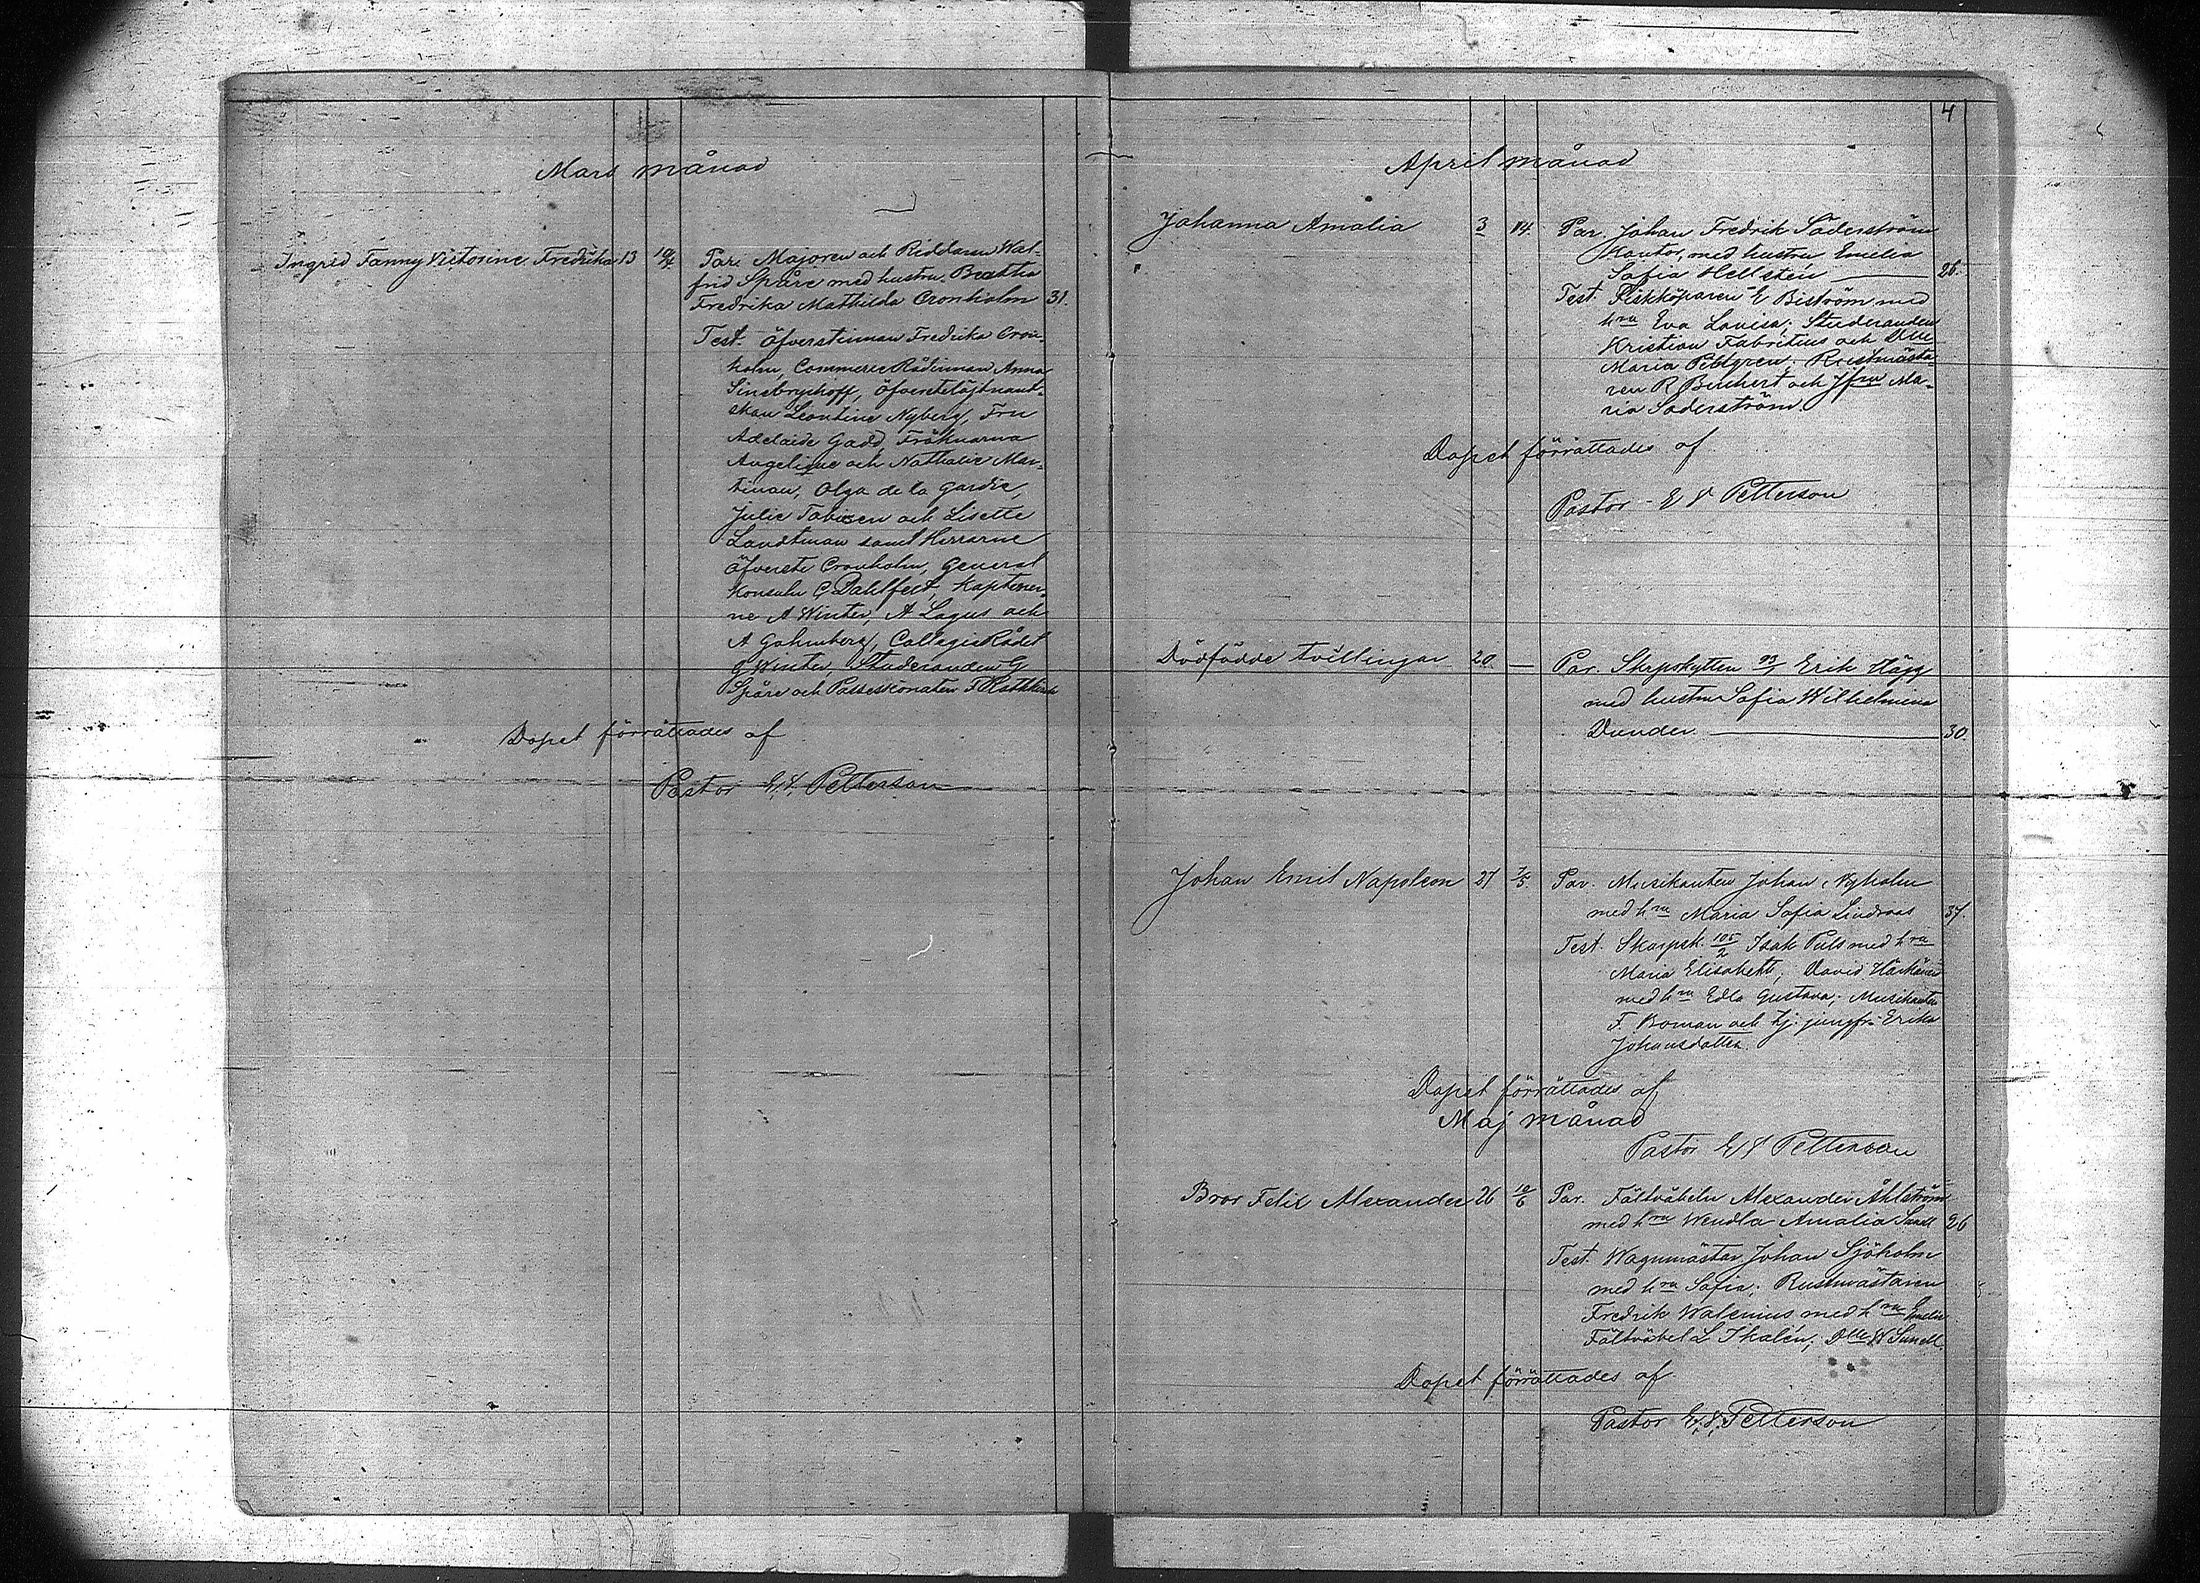 Mars månad
Ingrid Fanny Victorine Fredrika 13 10/4 Par. Majoren och Riddaren Wal-
frid Spåre med hustru Beatha
Fredrika Mathilda Cronholm 31.
Test. Öfverstinnan Fredrika Cron-
holm, Commerce Rådinnan Anna
Sinebrychoff, Öfverstelöjtnant-
skan Leontine Nyberg, Fru
Adelaide Gadd, Fröknarna
Angelique och Nathalie Mar-
tinau, Olga de la Gardie,
Julie Tobiesen och Lisette
Landtman samt Herrarne
Öfverste Cronholm, General
Konsuln C Dahlfelt, Kaptener-
ne A Winter, A Lagus och
A Gahmberg, CollegieRådet
G Winter, Studeranden G
Spåre och Possessionaten F
Dopet förrättades af
Pastor E. J. Petterson
4
April månad
Johanna Amalia 3 14. Par. Johan Fredrik Söderström
Kantor, med hustru Emelia
Sofia Hellsten 26.
Test. Fiskköparen E Biström med
hru Eva Lovisa; Studeranden
Kristian Fabritius och Dlle
Maria Pettgren; Rustmästa-
ren R och Jfru Ma-
ria Söderström.
Dopet förrättades af
Pastor E J Petterson
Dödfödde tvillingar 20. — Par. Skrpskytten Erik Hägg
med hustru Sofia Wilhelmina
Dunder 30.
Johan Emil Napoleon 27 7/5 Par. Musikanten Johan Nyholm
med hru Maria Sofia Lindroos 37.
Test. Skarpsk. 105/2 Isak Puls med hru
Maria Elisabeth; David
med hru Edla Gustava; Musikanten
F. Boman och tj. jungfr. Erika
Johansdotter.
Dopet förrättades af
Maj månad
Pastor E J Petterson
Bror Felix Alexander 26 10/6 Par. Fältväbeln Alexander Åhlström
med hru Wendla Amalia Sunell 26
Test. Wagnmästar Johan Sjöholm
med hru Sofia; Rustmästaren
Fredrik Walenius med hru Emelie
Fältväbel L Ikalén; Dlle W Sunell.
Dopet förrättades af
Pastor E. J. Petterson